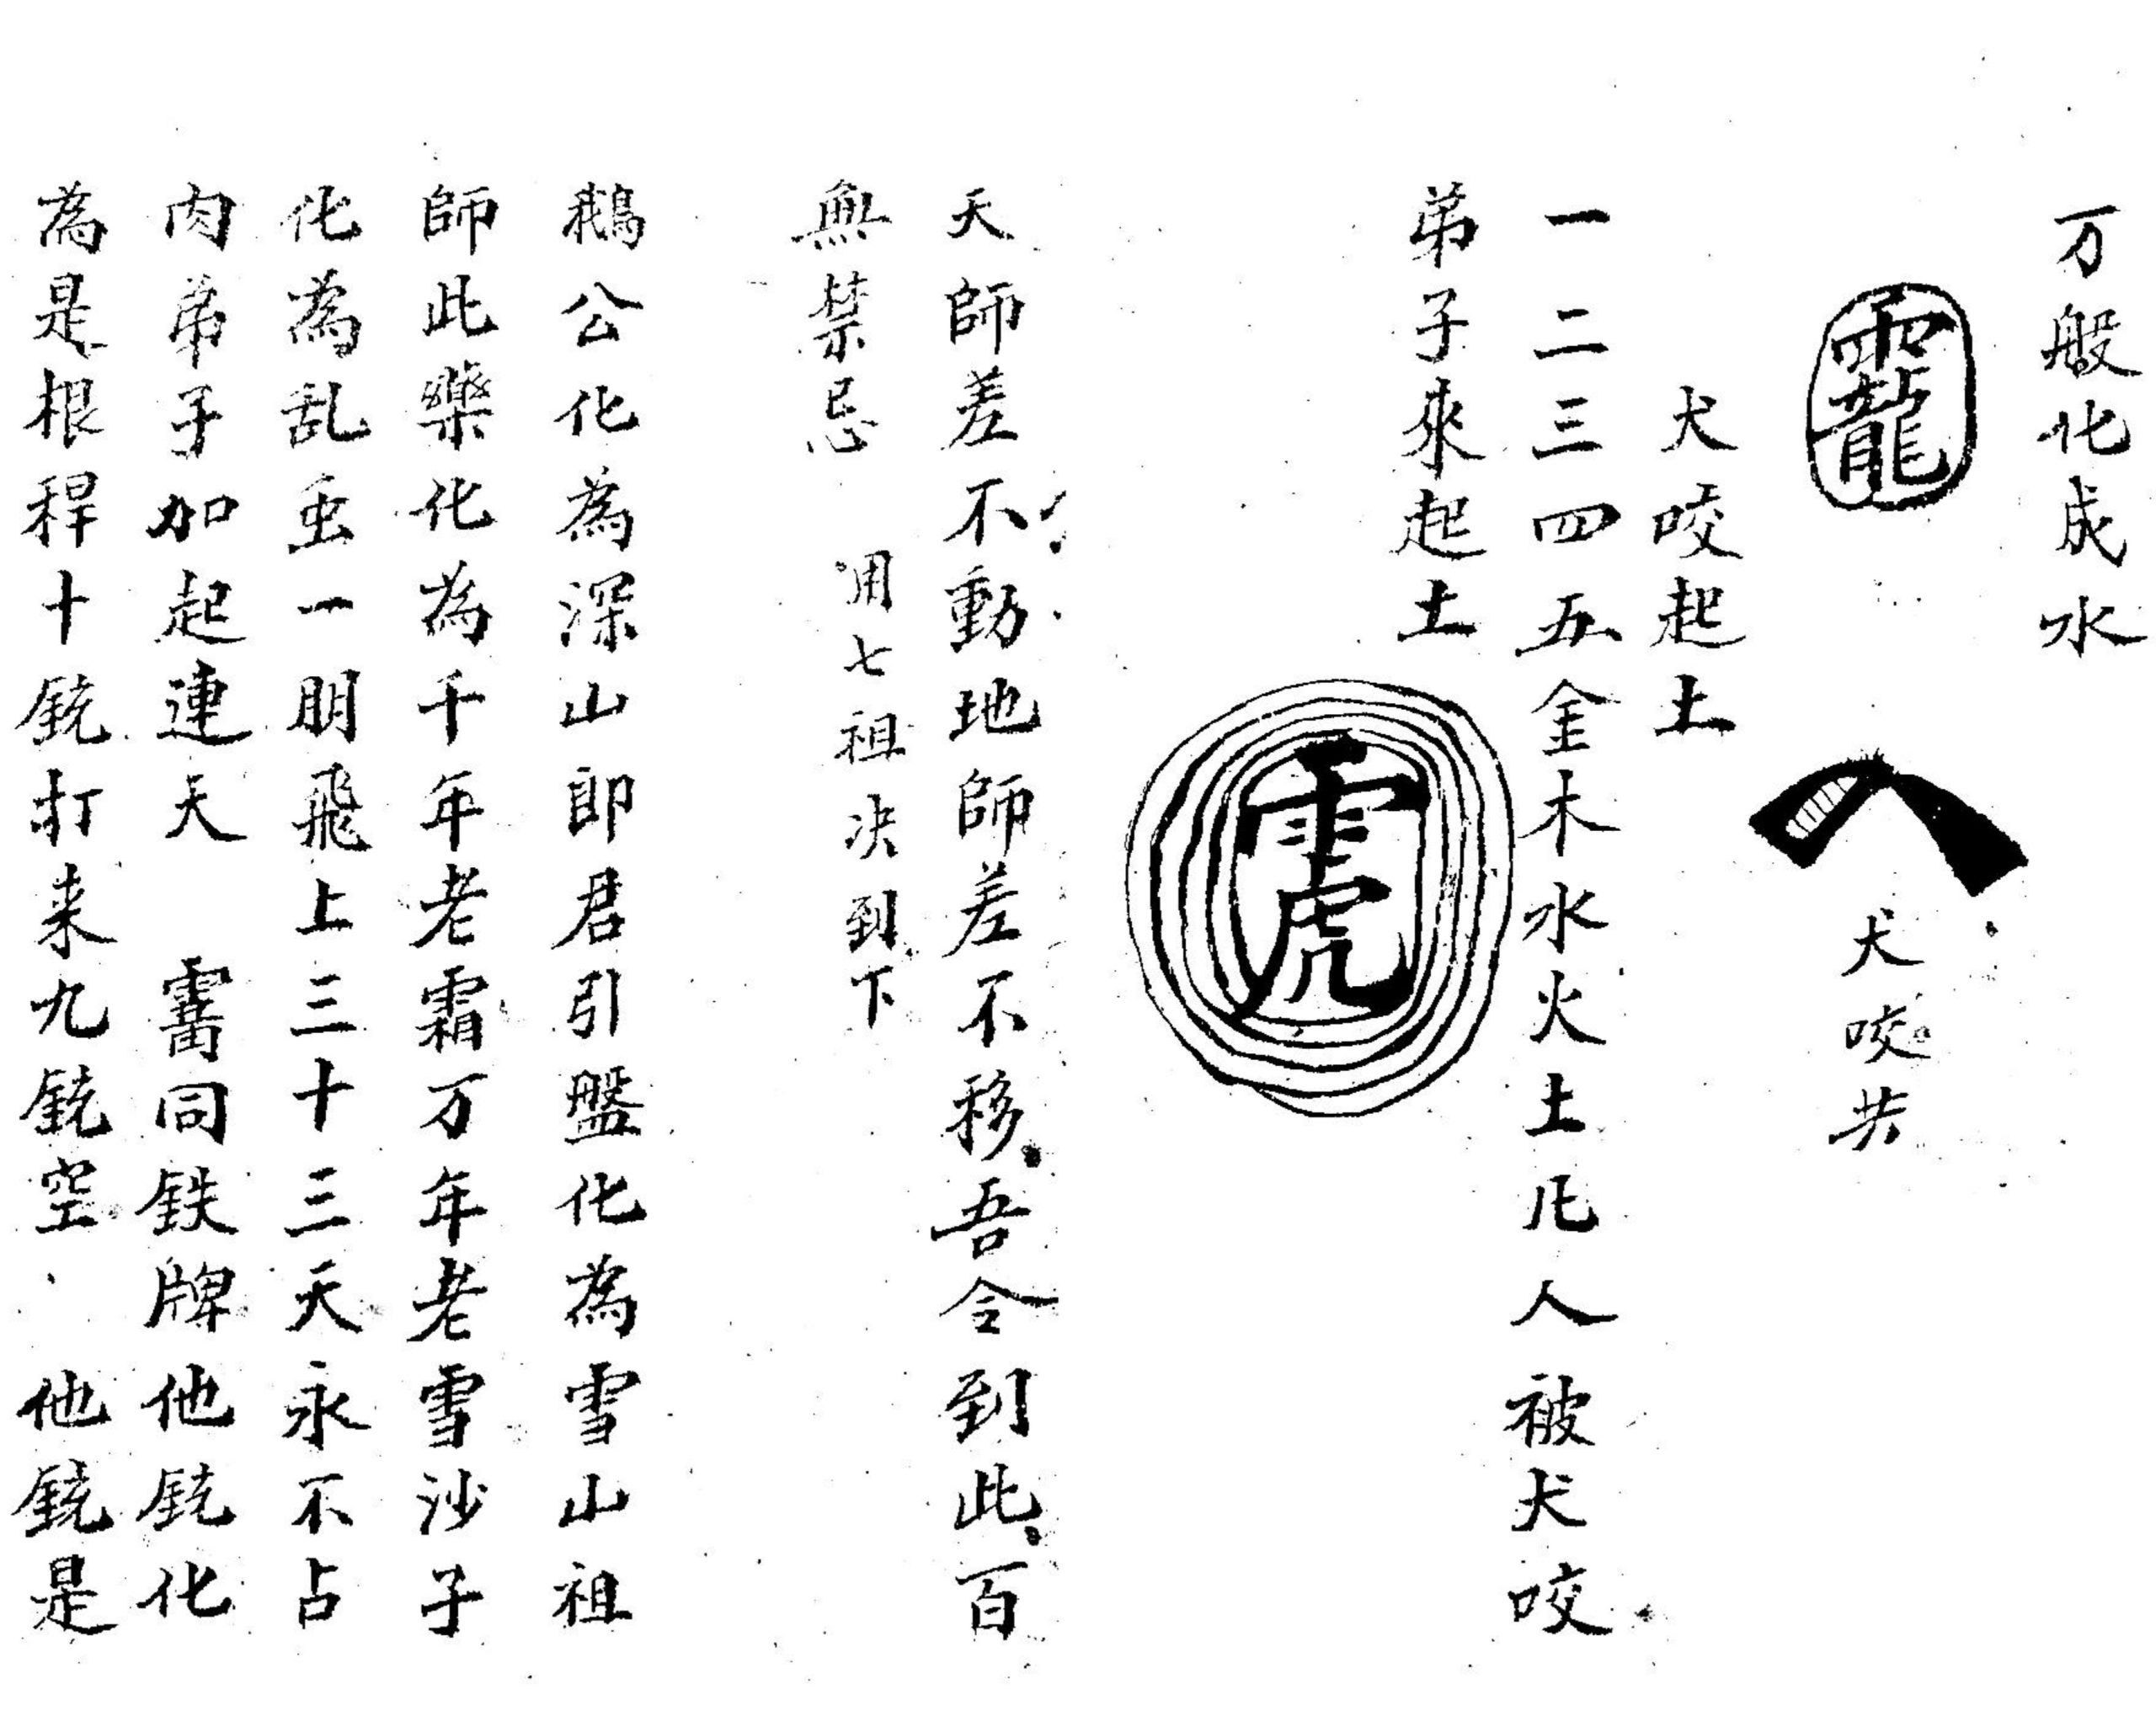 万般化成水
犬咬共
犬咬起土
一二三四五金木水火土凡人被犬咬
弟子來起土
天師差不動地師差不移吾令到此百
無禁忌 用七祖决到下
鵝公化為深山郎君引盤化為雪山祖
師此藥化為千年老霜万年老雪沙子
化為乱虫一朋飛上三十三天永不占
肉弟子加起連天 同鉄牌他銃化
為是根稈十銃打来九銃空 他銃是